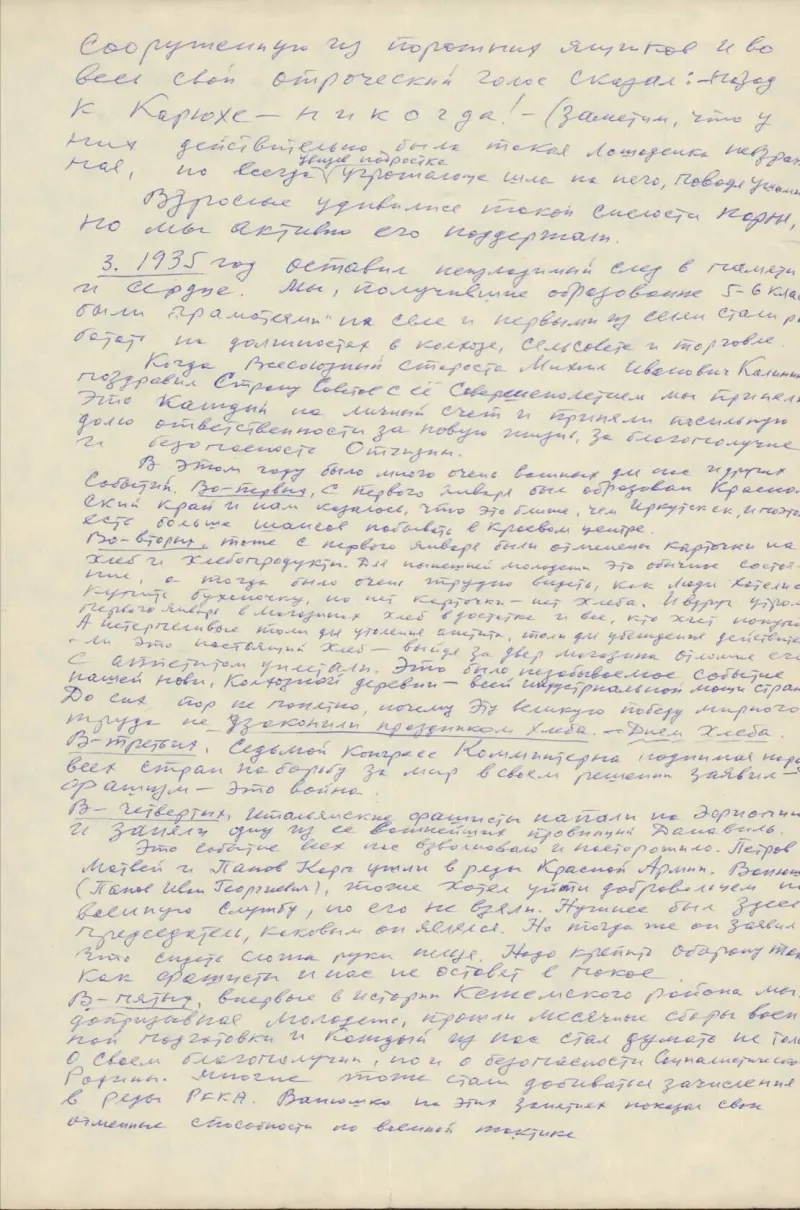 сооруженную из порожних ящиков и во
весь свой отроческий голос сказал: –назад
к Карюхе – никогда! – (Заметим, что у
них действительно была такая лошаденка невзрач
ная, но всегда увидев подростка угрожающе шла на него, поводя ушами
Взрослые удивились такой смелости парня,
но мы активно его поддержали.
3. 1935 год оставил неизгладимый след в памяти
и сердце. Мы, получившие образование 5-6 клас
были "грамотеями" на селе и первыми из семей стали ра
ботать на должностях в колхозе, сельсовете и торговле.
Когда Всесоюзный староста Михаил Иванович Калинин
поздравил Страну Советов с её Совершеннолетием мы приняли
это каждый на личный счет и приняли посильную
долю ответственности за новую жизнь, за благополучие
и безопасность Отчизны.
В этом году было много очень важных для нас и других
событий. Во-первых, с первого января был образован Красно
ский край и нам казалось, что это ближе, чем Иркутск, и поэтом
есть больше шансов побывать в краевом центре.
Во-вторых, тоже с первого января были отменены карточки на
хлеб и хлебопродукты. Для нынешней молодежи это обычное состоя-
ние, а тогда было очень трудно видеть, как люди хотели
купить буханочку, но нет карточки – нет хлеба. И вдруг утром
первого января в магазинах хлеб в достатке и все, кто хочет покупай
А нетерпеливые толи для утоления аппетита, толи для убеждения действите
– ли это настоящий хлеб – выйдя за двер магазина отломив его
с аппетитом уплетали. Это было незабываемое событие
нашей нови, колхозной деревни – всей индустриальной мощи стран
До сих пор не понятно, почему эту великую победу мирного
труда не узаконили праздником хлеба. – Днем Хлеба.
В-третьих, Седьмой Конгресс Коминтерна поднимая наро
всех стран на борьбу за мир в своем решении заявил –
фашизм – это война.
В-четвертых, итальянские фашисты напали на Эфиопию
и заняли одну из ее важнейших провинций
Это событие всех нас взволновало и насторожило. Петров
Матвей и Панов Карп ушли в ряды Красной Армии. Ванюш
(Панов Иван Георгиевич), тоже хотел уйти добровольцем на
военную службу, но его не взяли. Нужнее был здесь
председатель, каковым он являлся. Но тогда же он заявил
что сидеть сложа руки нельзя. Надо крепить оборону так
как фашисты и нас не оставят в покое.
В-пятых, впервые в истории Кежемского района мы,
допризывная молодежь, прошли месячные сборы воен
ной подготовки и каждый из нас стал думать не толь
о своем благополучии, но и о безопасности Социалистическо
Родины. Многие тоже стали добиваться зачисления
в ряды РККА. Ванюшка на этих занятиях показал свои
отменные способности по военной тактике